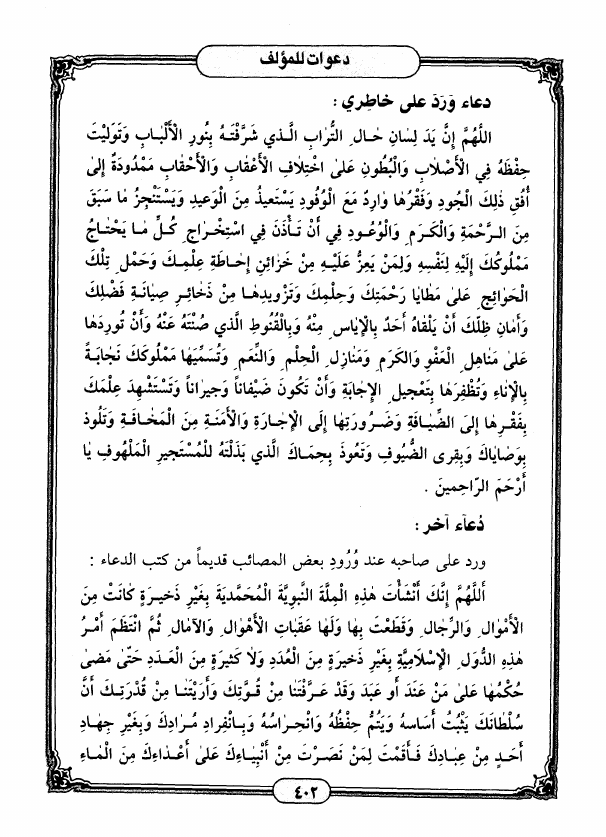 دعوات للمؤلف
دعاء وَرَدَ على خاطِري :
اللَّهُمَّ إِنَّ يَدَ لِسانِ حَالِ التُّرابِ الَّذي شَرَّفْتَهُ بِنُورِ الْأَلْبابِ وَتَوَلَّيْتَ
حِفْظَهُ فِي الْأَصْلابِ وَالْبُطُونِ عَلىٰ اخْتِلافِ الْأَعْقابِ وَالْأَحْقابِ مَمْدُودَةٌ إِلىٰ
أُفُقِ ذٰلِكَ الْجُودِ وَفَقْرُها وارِدٌ مَعَ الْوُفُودِ يَسْتَعيذُ مِنَ الْوَعيدِ وَيَسْتَنْجِزُ مٰا سَبَقَ
مِنَ الرَّحْمَةِ وَالْكَرَمِ وَالْوُعُودِ فِي أَنْ تَأْذَنَ فِي اسْتِخْراجِ كُلِّ مٰا يَحْتٰاجُ
مَمْلُوكُكَ إِلَيْهِ لِنَفْسِهِ وَلِمَنْ يَعِزُّ عَلَيْهِ مِنْ خَزائِنِ إِحٰاطَةِ عِلْمِكَ وَحَمْلِ تِلْكَ
الْحَوائِجِ عَلىٰ مَطايا رَحْمَتِكَ وَحِلْمِكَ وَتَزْويدِهٰا مِنْ ذَخائِرِ صِيانَةِ فَضْلِكَ
وَأَمانِ ظِلِّكَ أَنْ يَلْقاهُ أَحَدٌ بِالْإِياسِ مِنْهُ وَبِالْقُنُوطِ الَّذي صُنْتَهُ عَنْهُ وَأَنْ تُورِدَهٰا
عَلىٰ مَناهِلِ الْعَفْوِ وَالْكَرَمِ وَمَنازِلِ الْحِلْمِ وَالنِّعَمِ وَتُسَمِّيَهٰا مَمْلُوكَكَ نَجابَةً
بِالْإِناءِ وَتُظْفِرَهٰا بِتَعْجيلِ الإِجابَةِ وَأَنْ تَكُونَ ضَيْفاناً وَجيراناً وَتَسْتَشْهِدَ عِلْمَكَ
بِفَقْرِهٰا إِلَى الضِّيافَةِ وَضَرُورَتِهٰا إِلَى الْإِجارَةِ وَالْأَمَنَةِ مِنَ الْمَخٰافَةِ وَتَلُوذَ
بِوَصٰاياكَ وَبِقِرى الضُّيُوفِ وَتَعُوذَ بِحِمٰاكَ الَّذي بَذَلْتَهُ لِلْمُسْتَجيرِ الْمَلْهُوفِ يٰا
أَرْحَمَ الرّاحِمينَ .
دُعآء آخر :
ورد على صاحبه عند وُرُودِ بعض المصائب قديماً من كتب الدعاء :
أَللَّهُمَّ إِنَّكَ أَنْشَأْتَ هٰذِهِ الْمِلَّةَ النَّبَوِيَّةَ الْمُحَمَّديَةَ بِغَيْرِ ذَخيرَةٍ كٰانَتْ مِنَ
الْأَمْوالِ وَالرِّجالِ وَقَطَعْتَ بِهٰا وَلَهٰا عَقَباتِ الْأَهْوالِ وَالآمالِ ثُمَّ انْتَظَمَ أَمْرُ
هٰذِهِ الدُّوَلِ الْإِسْلامِيَّةِ بِغَيْرِ ذَخيرَةٍ مِنَ الْعُدَدِ وَلاٰ كَثيرَةٍ مِنَ الْعَدَدِ حَتّىٰ مَضىٰ
حُكْمُهٰا عَلىٰ مَنْ عَنَدَ أَو عَبَدَ وَقَدْ عَرَّفْتَنٰا مِنْ قُوَّتِكَ وَأَرَيْتَنٰا مِنْ قُدْرَتِكَ أَنَّ
سُلْطانَكَ يَثْبُتُ أَساسُهُ وَيَتُمُّ حِفْظُهُ وَانْحِراسُهُ وَبِانْفِرادِ مُرادِكَ وَبِغَيْرِ جِهادِ
أَحَدٍ مِنْ عِبٰادِكَ فَأَقَمْتَ لِمَنْ نَصَرْتَ مِنْ أَنْبِيٰاءِكَ عَلىٰ أَعْداءِكَ مِنَ الْماءِ
٤٠٢